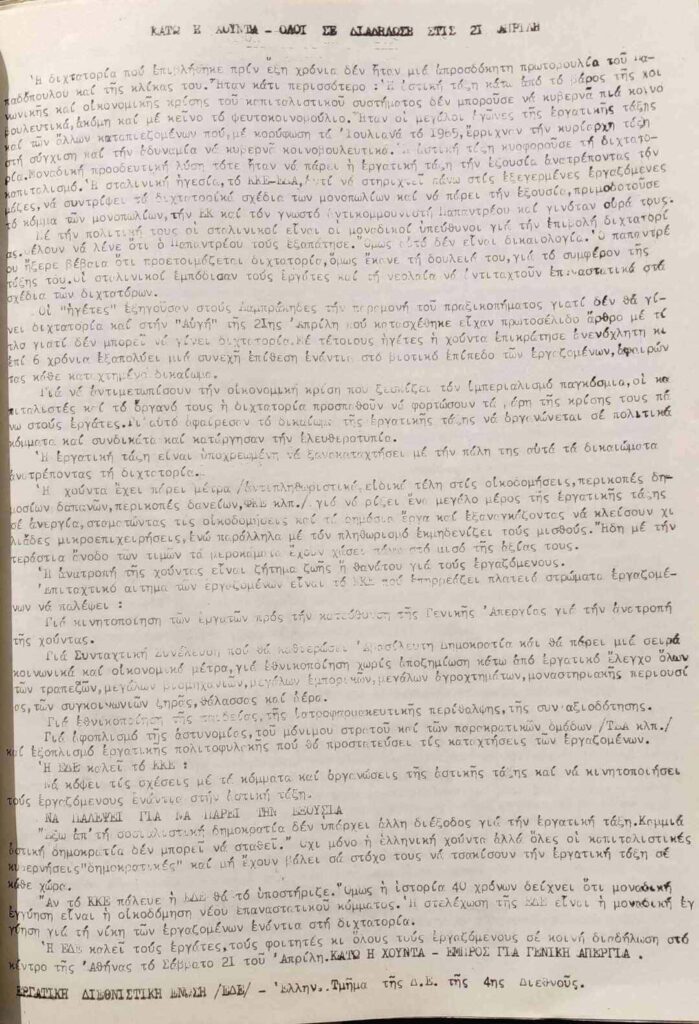 ΚΑΤΩ Η ΧΟΥΝΤΑ – ΟΛΟΙ ΣΕ ΔΙΑΔΗΛΩΣΗ ΣΤΙΣ 21 ΑΠΡΙΛΗ
Ἡ διχτατορία πού ἐπιβλήθηκε πρίν ἕξη χρόνια δέν ἦταν μιά ἀπροσδόκητη πρωτοβουλία τοῦ Πα-
παδόπουλου καί τῆς κλίκας του. Ἦταν κάτι περισσότερο : Ἡ ἀστική τάξη κάτω ἀπό τό βάρος τῆς κοι
νωνικῆς καί οἰκονομικῆς κρίσης τοῦ καπιταλιστικοῦ συστήματος δέν μποροῦσε νά κυβερνᾶ πιά κοινο
βουλευτικά, ἀκόμη καί μέ κεῖνο τό ψευτοκοινοβούλιο. Ἦταν οἱ μεγάλοι ἀγῶνες τῆς ἐργατικῆς τάξης
καί τῶν ἄλλων καταπιεζομένων πού, μέ κορύφωση τά Ἰουλιανά τό 1965, ἔρριχναν τήν κυρίαρχη τάξη
στή σύγχιση καί τήν ἀδυναμία νά κυβερνᾶ κοινοβουλευτικά. Ἡ ἀστική τάξη κυοφοροῦσε τή διχτατο-
ρία. Μοναδική προοδευτική λύση τότε ἦταν νά πάρει ἡ ἐργατική τάξη τήν ἐξουσία ἀνατρέποντας τόν
καπιταλισμό. Ἡ σταλινική ἡγεσία, τό ΚΚΕ-ΕΔΑ, ἀντί νά στηριχτεῖ πάνω στίς ἐξεγερμένες ἐργαζόμενες
μάζες, νά συντρίψει τά διχτατορικά σχέδια τῶν μονοπωλίων καί νά πάρει τήν ἐξουσία, πριμοδοτοῦσε
τό κόμμα τῶν μονοπωλίων, τήν ΕΚ καί τόν γνωστό ἀντικομμουνιστή Παπαντρέου καί γινόταν οὐρά τους.
Μέ τήν πολιτική τους οἱ σταλινικοί εἶναι οἱ μοναδικοί ὑπεύθυνοι γιά τήν ἐπιβολή διχτατορί
ας. Θέλουν νά λένε ὅτι ὁ Παπαντρέου τούς ἐξαπάτησε. Ὅμως αὐτό δέν εἶναι δικαιολογία. Ὁ Παπαντρέ
ου ἤξερε βέβαια ὅτι προετοιμάζεται διχτατορία, ὅμως ἔκανε τή δουλειά του, γιά τό συμφέρον τῆς
τάξης του. οἱ σταλινικοί ἐμπόδισαν τούς ἐργάτες καί τή νεολαία νά ἀντιταχτοῦν ἐπαναστατικά στά
σχέδια τῶν διχτατόρων.
Οἱ "ἡγέτες" ἐξηγοῦσαν στούς Λαμπράκηδες τήν παραμονή τοῦ πραξικοπήματος γιατί δέν θά γί-
νει διχτατορία καί στήν "Αὐγή" τῆς 21ης Ἀπρίλη πού κατασχέθηκε εἶχαν πρωτοσέλιδο ἄρθρο μέ τί
τλο γιατί δέν μπορεῖ νά γίνει διχτατορία. Μέ τέτοιους ἡγέτες ἡ χούντα ἐπικράτησε ἀνενόχλητη κι
ἐπί 6 χρόνια ἐξαπολύει μιά συνεχῆ ἐπίθεση ἐνάντια στό βιοτικό ἐπίπεδο τῶν ἐργαζομένων, ἀφαιρῶν
τας κάθε καταχτημένο δικαίωμα.
Γιά νά ἀντιμετωπίσουν τήν οἰκονομική κρίση πού ξεσκίζει τόν ἰμπεριαλισμό παγκόσμια, οἱ κα
πιταλιστές καί τό ὄργανό τους ἡ διχτατορία προσπαθοῦν νά φορτώσουν τά βάρη τῆς κρίσης τους πά
νω στούς ἐργάτες. Γι' αὐτό ἀφαίρεσαν τό δικαίωμα τῆς ἐργατικῆς τάξης νά ὀργανώνεται σέ πολιτικά
κόμματα καί συνδικάτα καί κατάργησαν τήν ἐλευθεροτυπία.
Ἡ ἐργατική τάξη εἶναι ὑποχρεωμένη νά ξανακαταχτήσει μέ τήν πάλη της αὐτά τά δικαιώματα
ἀνατρέποντας τή διχτατορία.
Ἡ χούντα ἔχει πάρει μέτρα /ἀντιπληθωριστικά, εἰδικά τέλη στίς οἰκοδομήσεις, περικοπές δη-
μοσίων δαπανῶν, περικοπές δανείων, ΦΚΕ κλπ./ γιά νά ρίξει ἕνα μεγάλο μέρος τῆς ἐργατικῆς τάξης
σέ ἀνεργία, σταματώντας τίς οἰκοδομήσεις καί τά δημόσια ἔργα καί ἐξαναγκάζοντας νά κλείσουν χι
λιάδες μικροεπιχειρήσεις, ἐνῶ παράλληλα μέ τόν πληθωρισμό ἐκμηδενίζει τούς μισθούς. Ἤδη μέ τήν
τεράστια ἄνοδο τῶν τιμῶν τά μεροκάματα ἔχουν χάσει πάνω ἀπό μισό τῆς ἀξίας τους.
Ἡ ἀνατροπή τῆς χούντας εἶναι ζήτημα ζωῆς ἤ θανάτου γιά τούς ἐργαζόμενους.
Ἐπιταχτικό αἴτημα τῶν ἐργαζομένων εἶναι τό ΚΚΕ πού ἐπηρρεάζει πλατειά στρώματα ἐργαζομέ-
νων νά παλέψει :
Γιά κινητοποίηση τῶν ἐργατῶν πρός τήν κατεύθυνση τῆς Γενικῆς Ἀπεργίας γιά τήν ἀνατροπή
τῆς χούντας.
Γιά Συνταχτική Συνέλευση πού θά καθιερώσει Ἀβασίλευτη Δημοκρατία καί θά πάρει μιά σειρά
κοινωνικά καί οἰκονομικά μέτρα, γιά ἐθνικοποίηση χωρίς ἀποζημίωση κάτω ἀπό ἐργατικό ἔλεγχο ὅλων
τῶν τραπεζῶν, μεγάλων βιομηχανιῶν, μεγάλων ἐμπορικῶν, μεγάλων ἀγροχτημάτων, μοναστηριακῆς περιουσί
ας, τῶν συγκοινωνιῶν ξηρᾶς, θάλασσας καί ἀέρα.
Γιά ἐθνικοποίηση τῆς παιδείας, τῆς ἰατροφαρμακευτικῆς περίθαλψης, τῆς συνταξιοδότησης.
Γιά ἀφοπλισμό τῆς ἀστυνομίας, τοῦ μόνιμου στρατοῦ καί τῶν παρακρατικῶν ὁμάδων /ΤΕΑ κλπ./
καί ἐξοπλισμό ἐργατικῆς πολιτοφυλακῆς πού θά προστατεύσει τίς καταχτήσεις τῶν ἐργαζομένων.
Ἡ ΕΔΕ καλεῖ τό ΚΚΕ :
Νά κόψει τίς σχέσεις μέ τά κόμματα καί ὀργανώσεις τῆς ἀστικῆς τάξης καί νά κινητοποιήσει
τούς ἐργαζόμενους ἐνάντια στήν ἀστική τάξη.
ΝΑ ΠΑΛΕΨΕΙ ΓΙΑ ΝΑ ΠΑΡΕΙ ΤΗΝ ΕΞΟΥΣΙΑ
Ἔξω ἀπ' τή σοσιαλιστική δημοκρατία δέν ὑπάρχει ἄλλη διέξοδος γιά τήν ἐργατική τάξη. Καμμιά
ἀστική δημοκρατία δέν μπορεῖ νά σταθεῖ. Ὄχι μόνο ἡ ἑλληνική χούντα ἀλλά ὅλες οἱ καπιταλιστικές
κυβερνήσεις "δημοκρατικές" καί μή ἔχουν βάλει σά στόχο τους νά τσακίσουν τήν ἐργατική τάξη σέ
κάθε χώρα.
Ἄν τό ΚΚΕ πάλευε ἡ ΕΔΕ θά τό ὑποστήριζε. Ὅμως ἡ ἱστορία 40 χρόνων δείχνει ὅτι μοναδική
ἐγγύηση εἶναι ἡ οἰκοδόμηση νέου ἐπαναστατικοῦ κόμματος. Ἡ στελέχωση τῆς ΕΔΕ εἶναι ἡ μοναδική ἐγ
γύηση γιά τή νίκη τῶν ἐργαζομένων ἐνάντια στή διχτατορία.
Ἡ ΕΔΕ καλεῖ τούς ἐργάτες, τούς φοιτητές κι ὅλους τούς ἐργαζόμενους σέ κοινή διαδήλωση στό
κέντρο τῆς Ἀθήνας τό Σάββατο 21 τοῦ Ἀπρίλη. ΚΑΤΩ Η ΧΟΥΝΤΑ – ΕΜΠΡΟΣ ΓΙΑ ΓΕΝΙΚΗ ΑΠΕΡΓΙΑ .
ΕΡΓΑΤΙΚΗ ΔΙΕΘΝΙΣΤΙΚΗ ΕΝΩΣΗ /ΕΔΕ/ – Ἑλλην. Τμῆμα τῆς Δ.Ε. τῆς 4ης Διεθνοῦς.